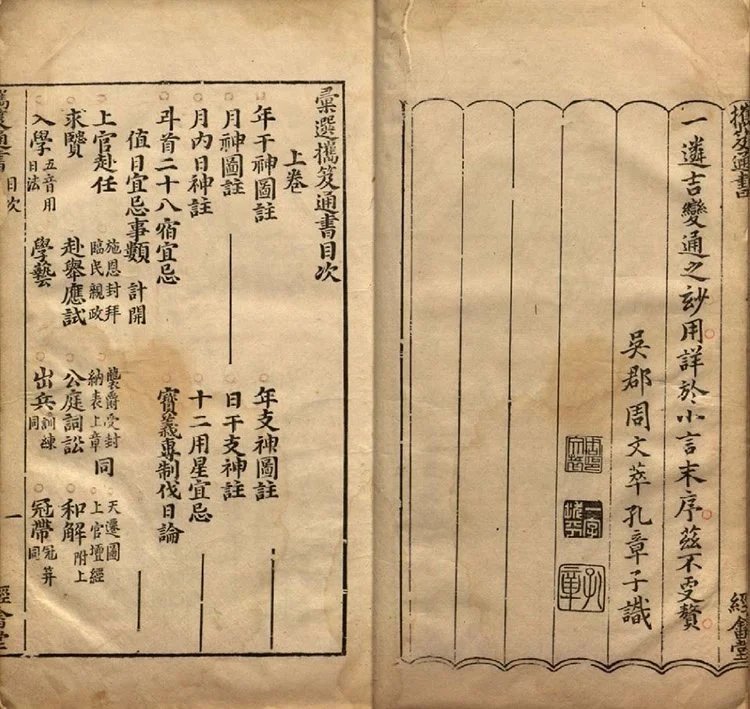 攜笈通書
經畬堂
一遴吉變通之玅用詳於小言末序茲不更贅
吳郡周文萃孔章子識
孔章
彙選攜笈通書目次
上卷
年干神圖註 年支神圖註
月神圖註 日干支神註
月內日神註 十二用星宜忌
斗首二十八宿宜忌 寶義專制伐日論
值日宜忌事類 計開
上官赴任 施恩封拜臨民親政 襲爵受封納表上章同 天遷圖上官壇經
求贒 赴舉應試 公庭詞訟 和解附上
入學五音用日法 學藝 出兵訓練同 冠帶冠笄同
攜笈通書 目次 一 經畬堂